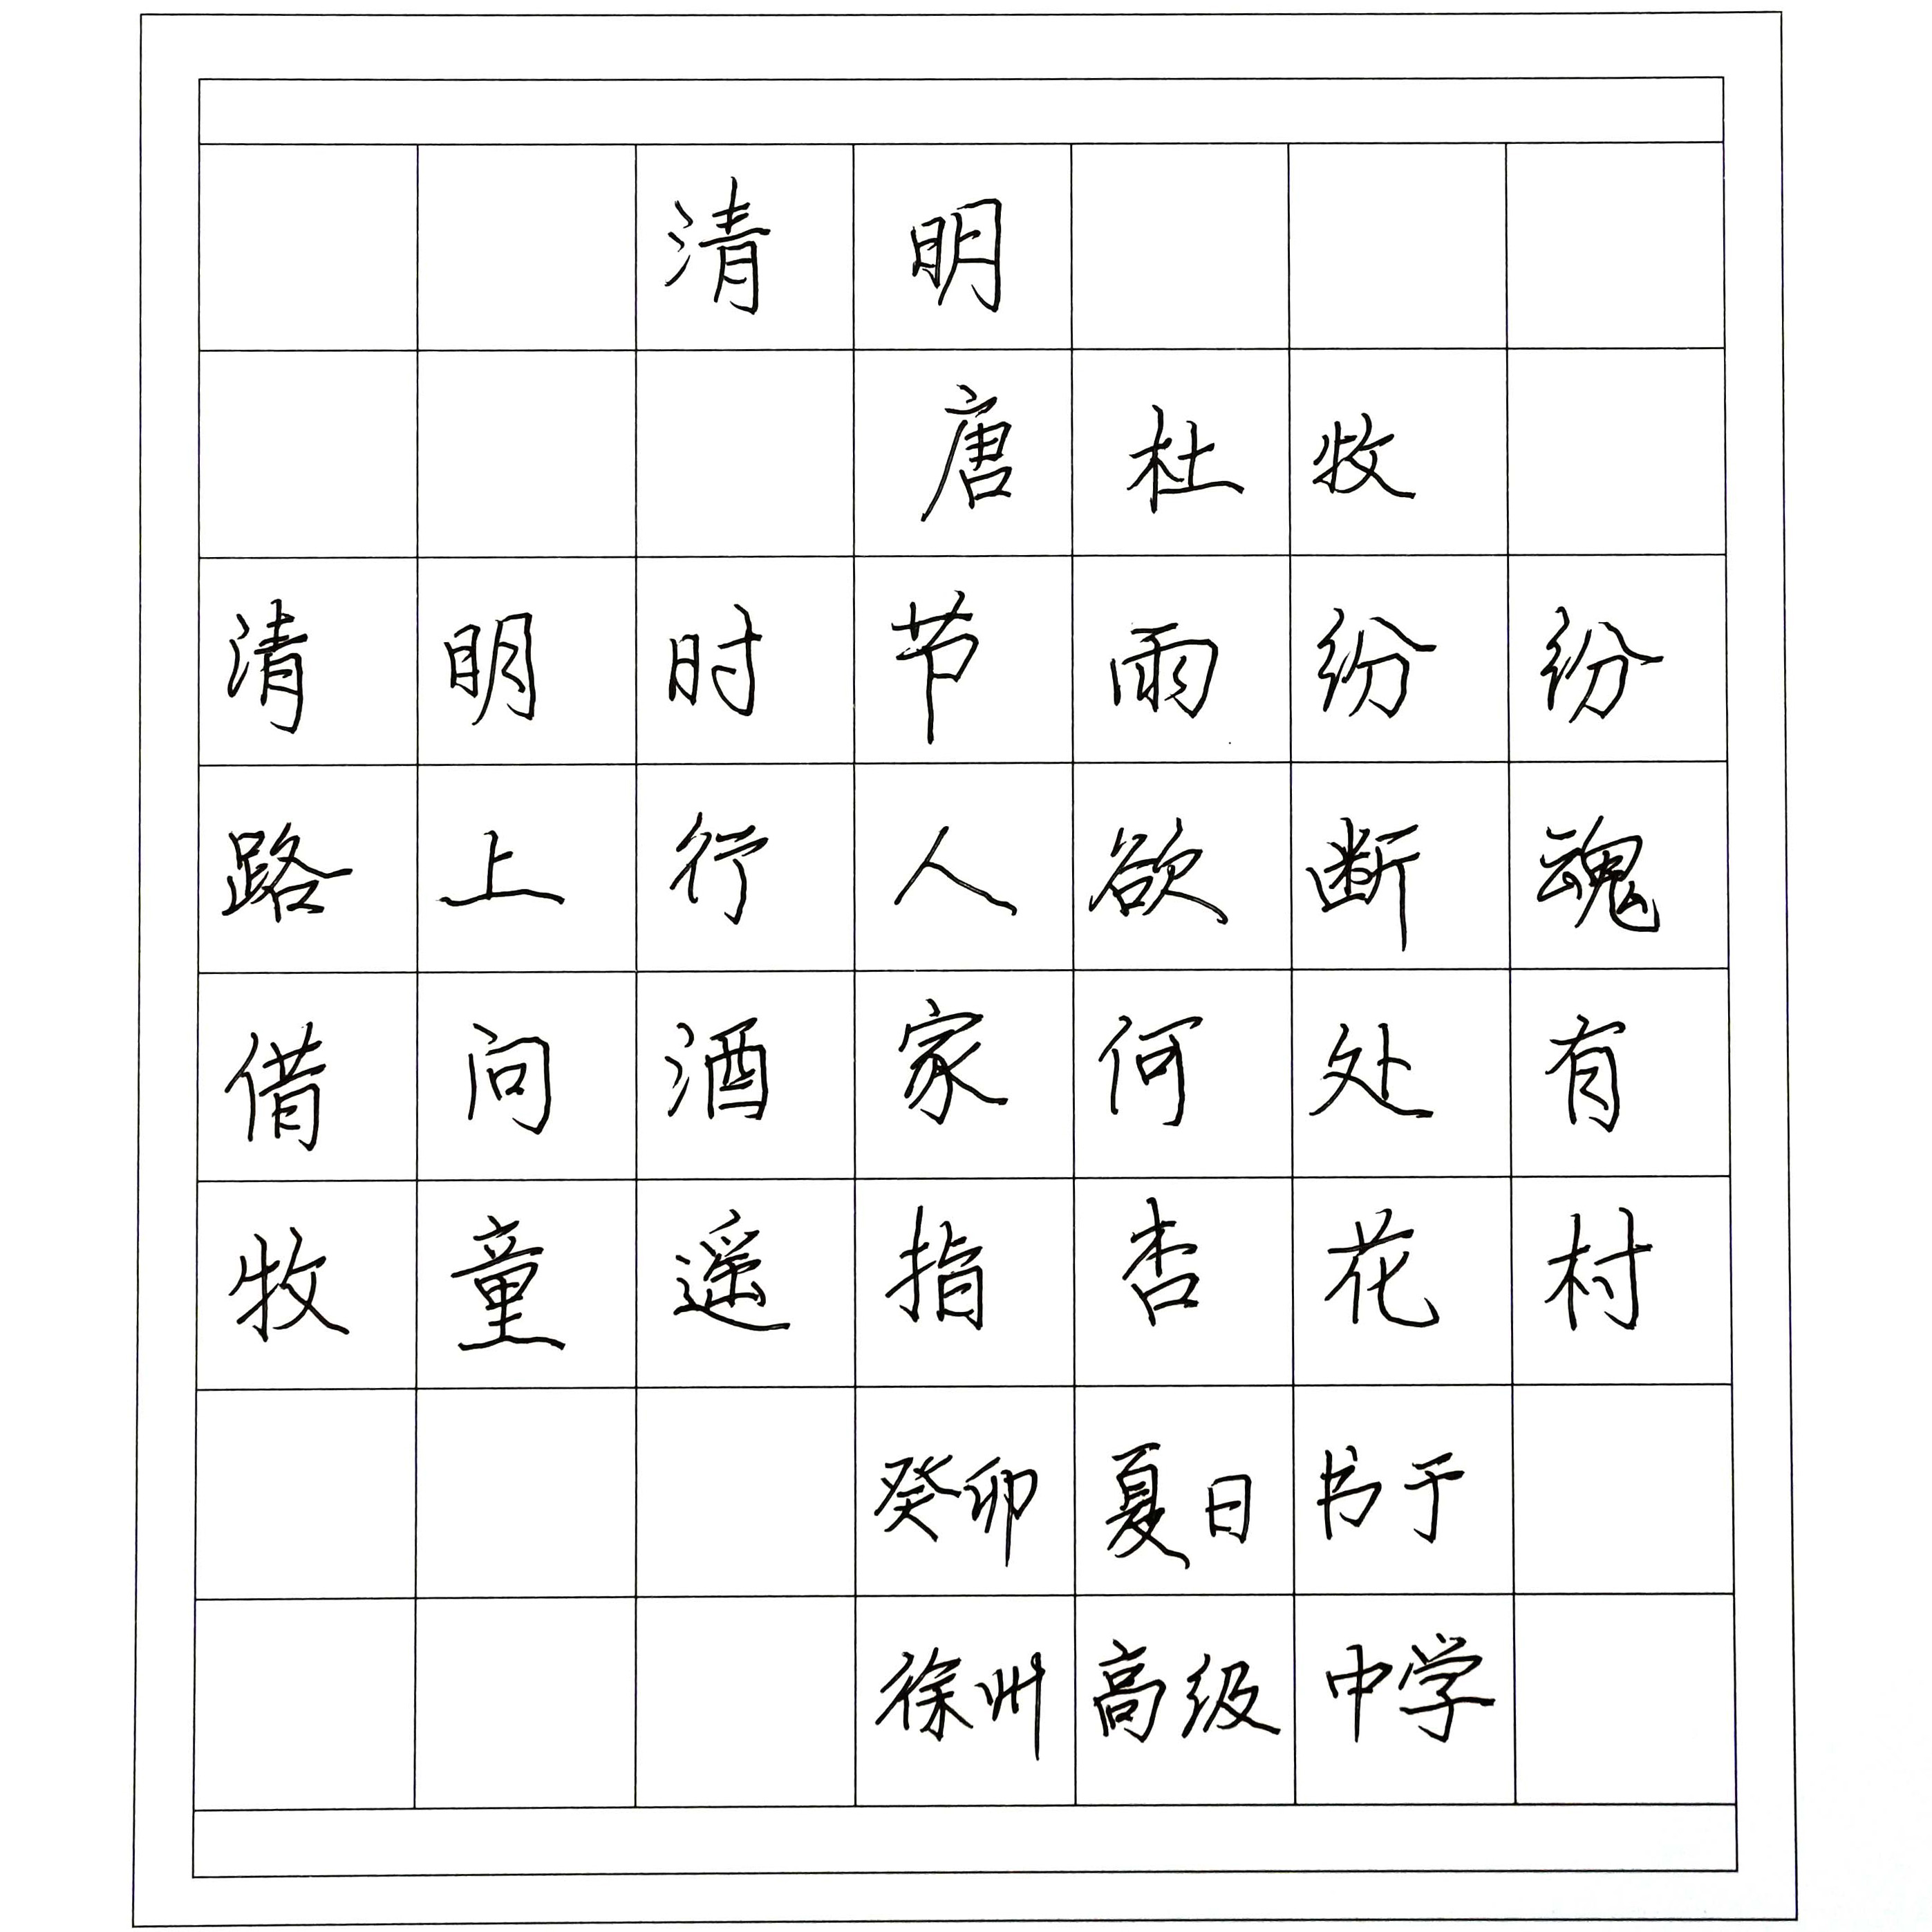 清明
唐杜牧
清明时节雨纷纷
路上行人欲断魂
借问酒家何处有
牧童遥指杏花村
癸卯夏日书于
徐州高级中学